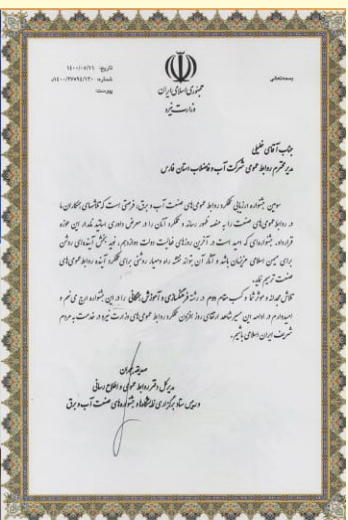 بسمه‌تعالی
جمهوری اسلامی ایران
وزارت نیرو
تاریخ:
شماره:
پیوست:
جناب آقای خلیلی
مدیر محترم روابط عمومی شرکت آب و فاضلاب استان فارس
سومین جشنواره ارزیابی عملکرد روابط عمومی‌های صنعت آب و برق، فرصتی است که تلاشهای همکاران ما
در روابط عمومی‌های صنعت را به منصه ظهور رساند و عملکرد آنان را در معرض داوری اساتید نامدار این حوزه
قرار داد. جشنواره‌ای که امید است در آخرین روزهای فعالیت دولت دوازدهم، نوید بخش آینده‌ای روشن
برای میهن اسلامی عزیزمان باشد و آثار آن بتواند نقشه راه و معیار روشنی برای عملکرد آینده روابط عمومی‌های
صنعت ترسیم نماید.
تلاش مجدانه و موثر شما و کسب مقام دوم در رشته فرهنگسازی و آموزش همگانی را در این جشنواره ارج می نهم و
امیدوارم در ادامه این مسیر شاهد ارتقای روز افزون عملکرد روابط عمومی‌های وزارت نیرو در خدمت به مردم
شریف ایران اسلامی باشیم.
مدیرکل دفتر روابط عمومی و اطلاع رسانی
و رییس ستاد برگزاری نمایشگاه‌ها و جشنواره‌های صنعت آب و برق